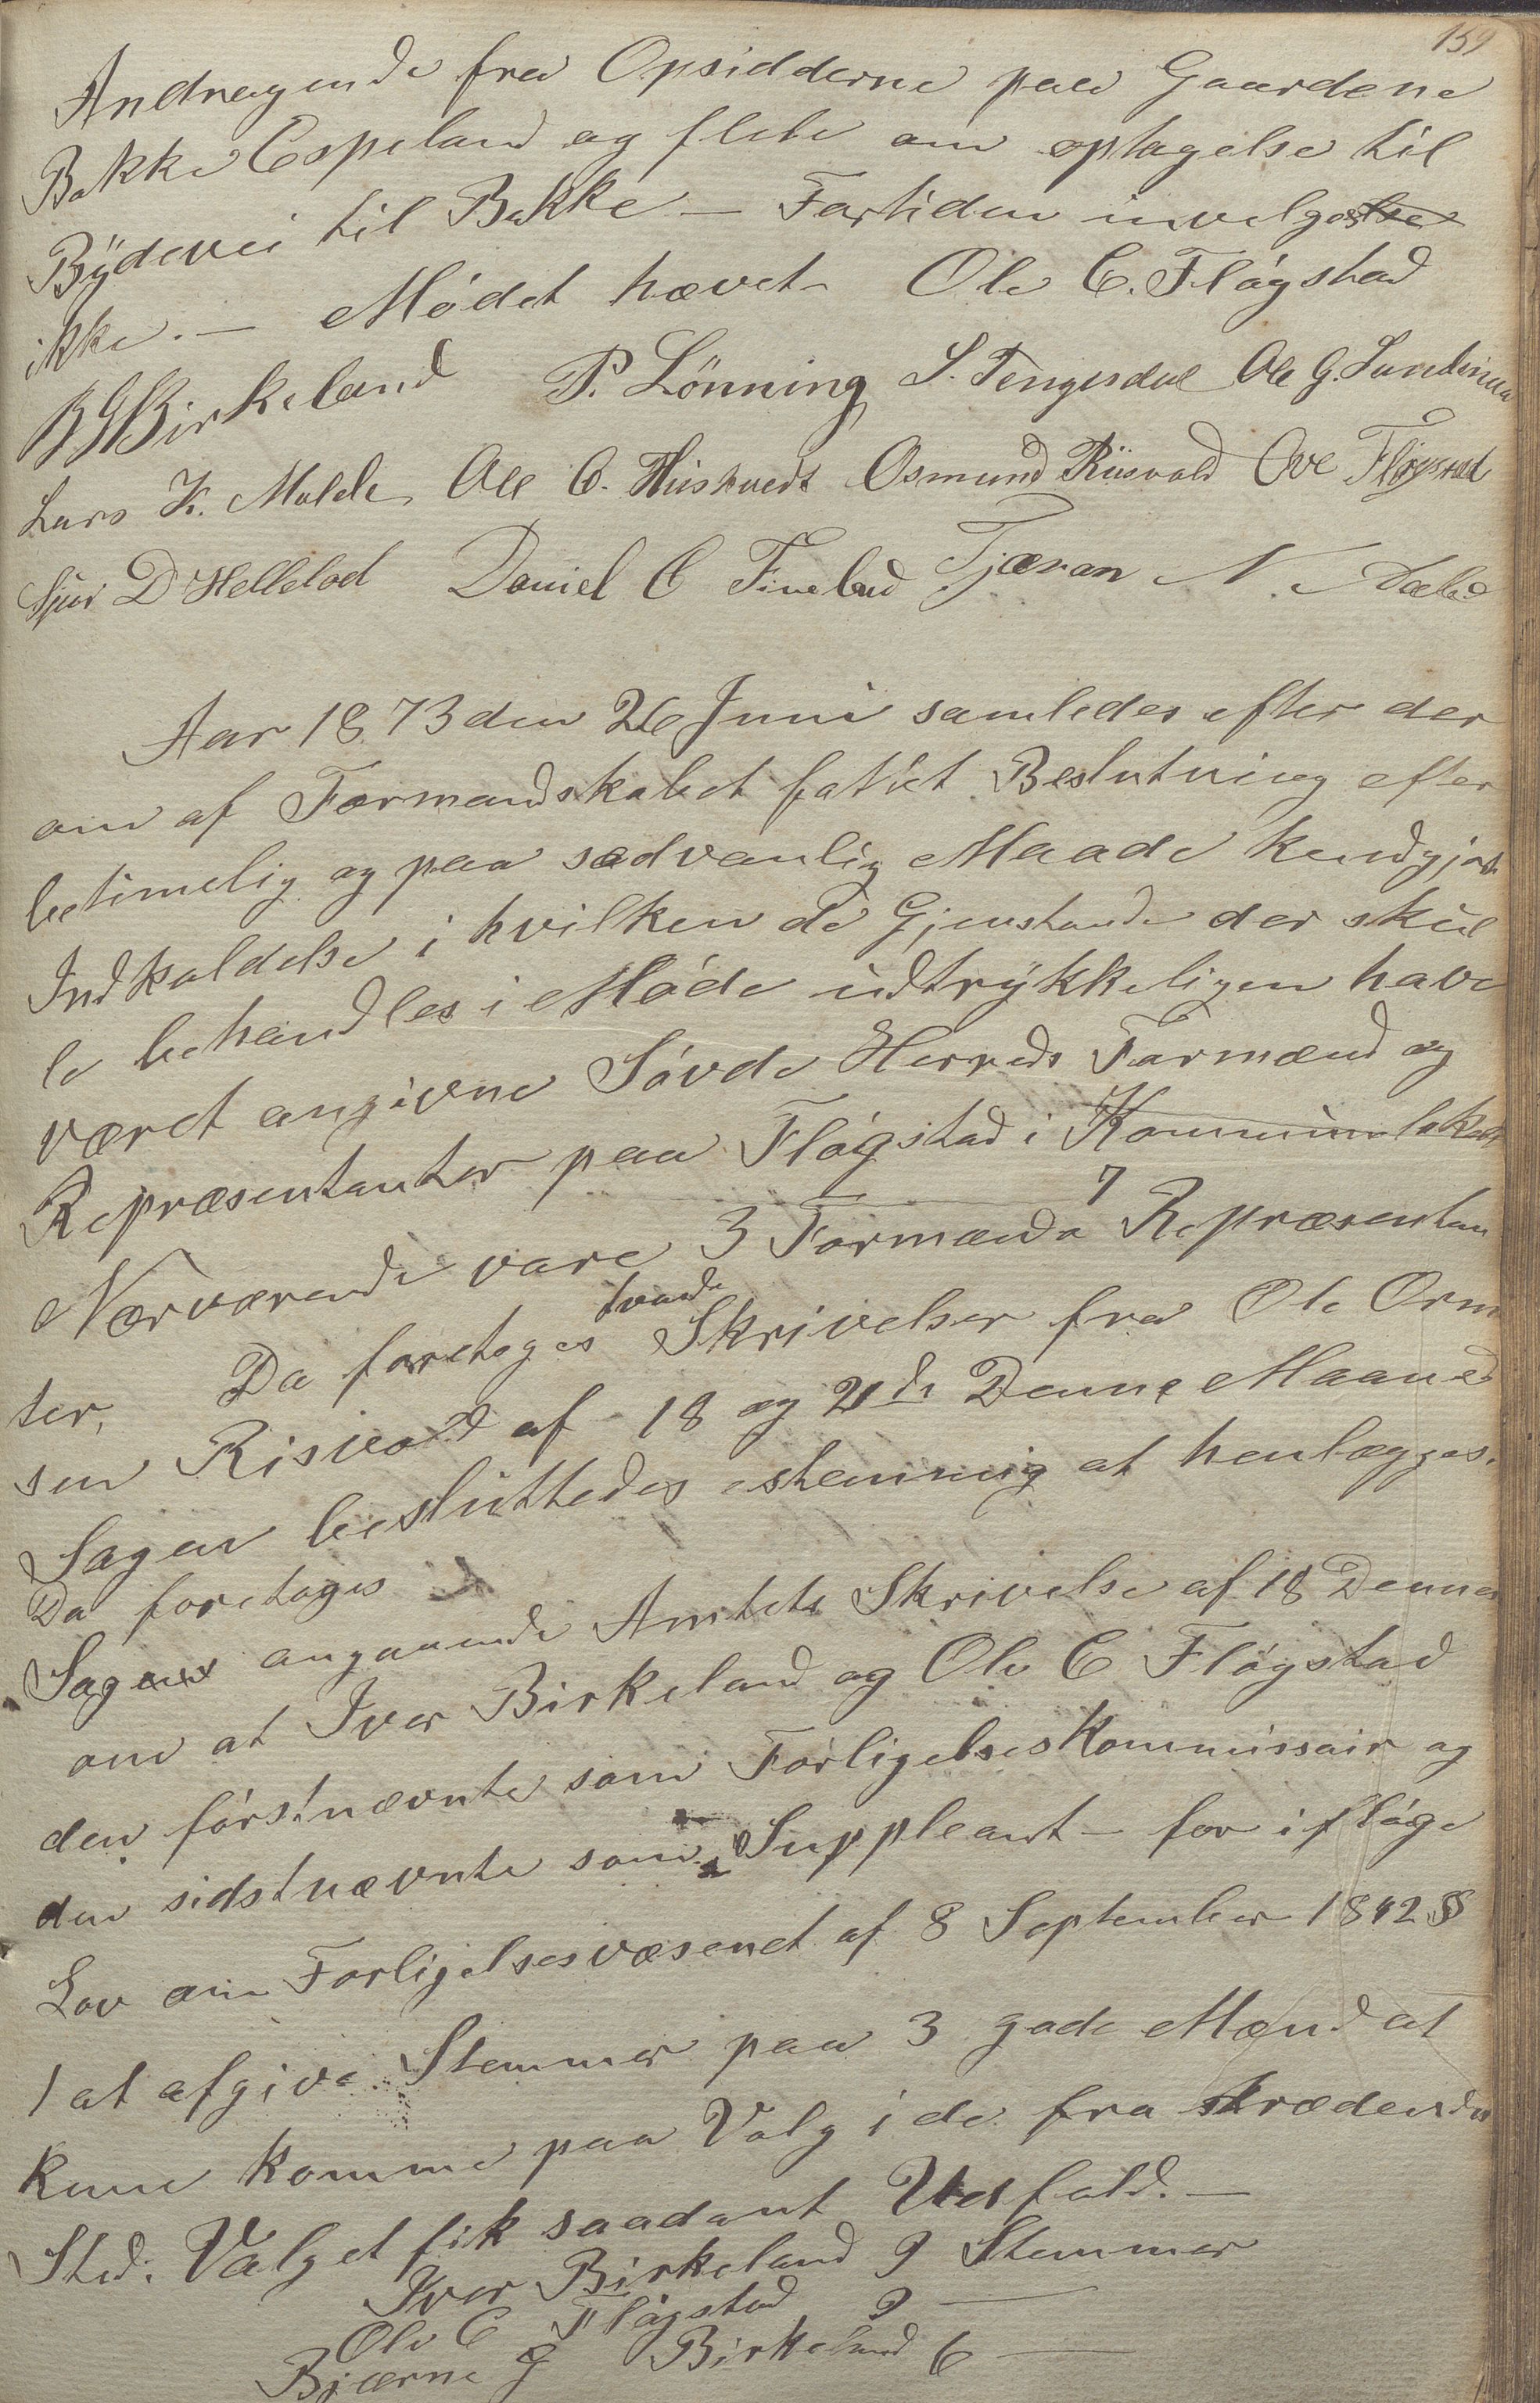 159
Andragende fra Opsidderne paa Gaardene
Bakke Espeland og flere om optagelse til
Bÿdevei til Bakke — Fortiden invelges
ikke. — Mödet hævet — Ole C. Flógstad
B G Birkeland P. Lönning S. Tengesdal Ole G.
Lars K. Molde Ole C. Hiskvedt Osmund Riisvold Ove Fløgstad
Sjur D Helleland Daniel O Fineland Tjæran N.
Aar 1873 den 26 Juni samledes efter der
om af Formandskabet fattet Beslutning efter
betimelig og paa sædvanlig Maade kundgjort
Indkaldelse i hvilken de Gjenstande der skul
le behandles i Móde udtrÿkkeligen have
været angivne Sövde Herreds Formænd og
Repræsentanter paa Flógstad i Kommunelokale
Nærværende vare 3 Formænd 7 Repræsentan
ter, Da foretoges tvende Skrivelser fra Ole Orm
sen Risvold af 18 og 21de Denne Maaned
Sagen besluttedes estemmig at henlægges.
Da foretoges
Sagen angaaende Amtets Skrivelse af 18 Dennes
om at Iver Birkeland og Ole C Flógstad
den fórstnævnte som Forligelseskommissair og
den sidstnævnte som Suppleant — for iflóge
Lov om Forligelsesvæsenet af 8 September 1842 §
1 at afgive Stemmer paa 3 gode Mænd at
kune komme paa Valg i de fratrædendes
Sted. Valget fik saadant Udfald. —
Iver Birkeland 9 Stemmer
Ole C Flógstad 9 —
Bjærne G Birkeland 6 —